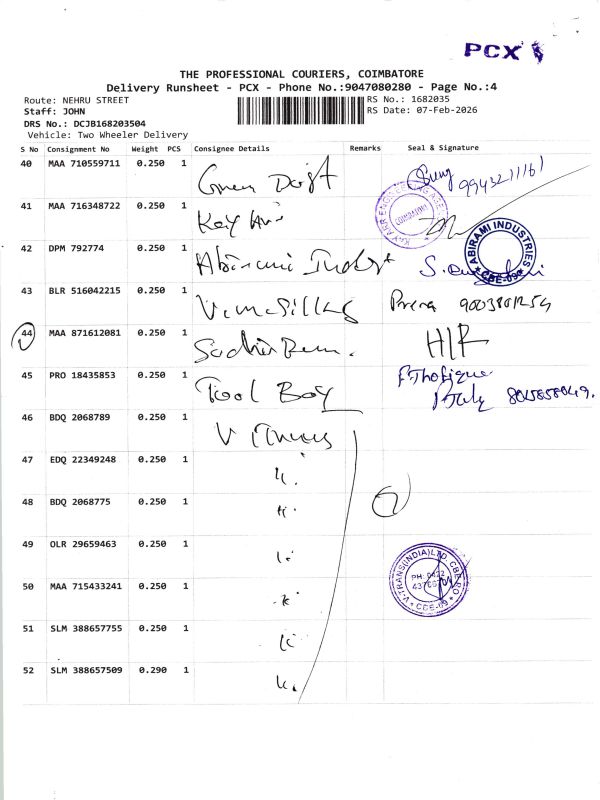 PCX
THE PROFESSIONAL COURIERS, COIMBATORE
Delivery Runsheet - PCX - Phone No.:9047080280 - Page No.:4
Route: NEHRU STREET
RS No.: 1682035
Staff: JOHN
RS Date: 07-Feb-2026
DRS No.: DCJB168203504
Vehicle: Two Wheeler Delivery
S No Consignment No Weight PCS Consignee Details Remarks Seal & Signature
40 MAA 710559711 0.250 1 Green 9943211161
41 MAA 716348722 0.250 1 Key COIMBATORE
42 DPM 792774 0.250 1 Abirami ABIRAMI INDUSTRIES CBE-09
43 BLR 516042215 0.250 1
44 MAA 871612081 0.250 1 H/R
45 PRO 18435853 0.250 1 Tool Boy
46 BDQ 2068789 0.250 1 V
47 EDQ 22349248 0.250 1
48 BDQ 2068775 0.250 1
49 OLR 29659463 0.250 1
V-TRANS(INDIA)LTD. CBE-09
50 MAA 715433241 0.250 1
51 SLM 388657755 0.250 1
52 SLM 388657509 0.290 1